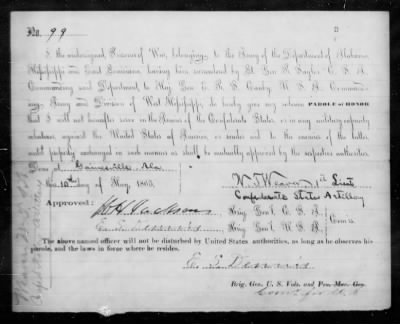 No. 99
I the undersigned, Prisoner of War, belonging to the Army of the Department of Alabama,
Mississippi and East Louisiana, having been surrendered by Lt. Gen. R. Taylor, C. S. A.,
Commanding said Department, to Maj. Gen. E. R. S. Canby, U. S. A., Command-
ing Army and Division of West Mississippi, do hereby give my solemn PAROLE of HONOR
that I will not hereafter serve in the Armies of the Confederate States, or in any military capacity
whatever, against the United States of America, or render aid to the enemies of the latter,
until properly exchanged in such manner as shall be mutually approved by the respective authorities.
Done at Gainesville Ala
this 10th day of May, 1865.
1st Lieut
Confederate States Artillery
Approved:
W H Jackson
Brig. Gen'l. C. S. A.
E. S. Dennis
Brig. Gen'l. U. S. A.
Com'rs.
The above named officer will not be disturbed by United States authorities, as long as he observes his
parole, and the laws in force where he resides.
E. S. Dennis
Brig. Gen. U. S. Vols. and Pro. Mar. Gen.